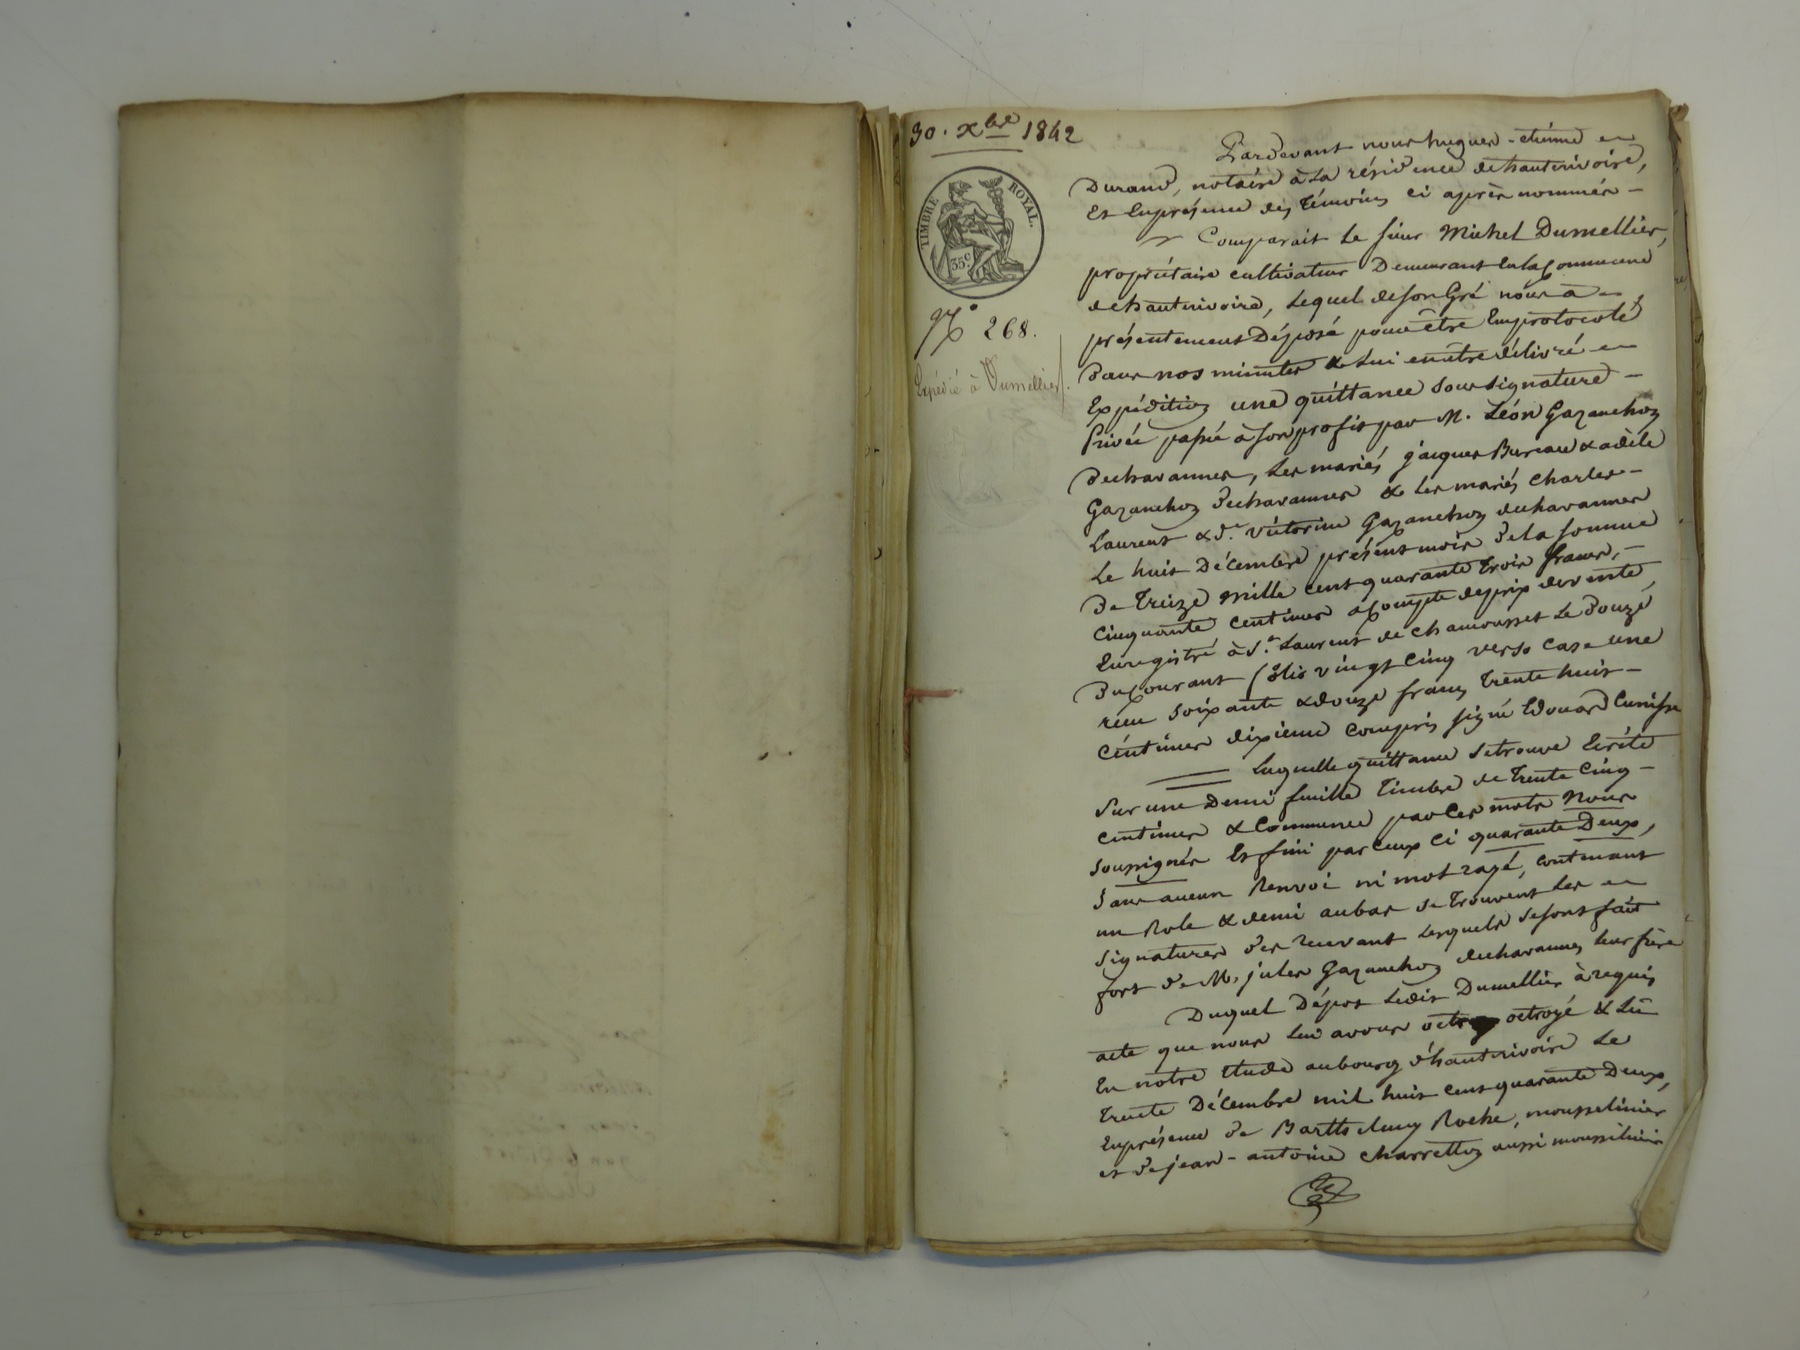 30. xbre 1842
TIMBRE ROYAL.
35 c.
N° 268.
Expédié à Dumellier
Pardevant nous hugues-étiénne
Durand, notaire à la résidence de hauterivoire,
Et Enprésence des témoins ci après nommés -
Comparait Le sieur Michel Dumellier,
propriétaire cultivateur Demeurant enlaCommune
de hauterivoire, Lequel deson Gré nous à
présentement Déposé pour être Enprotocolé
Dans nos minutes & Lui enêtre délivré
Expédition une quittance sous signature -
Privée passée àson profit par M. Léon Gazanchon
Dechavannes, Les mariés jacques Bureau & adèle
Gazanchon Dechavannes & Les mariés charles -
Laurent & de. victorine Gazanchon dechavannes
Le huit Décembre présent mois De la somme
De Treize mille cent quarante trois francs, -
Cinquante centimes àCompte deprix devente,
Enregistré à St. Laurent de chamousset Le Douze
DuCourant folio vingt Cinq verso Case une
reçu soixante & douze francs trente huit -
Céntimes dixième compris signé Edouard
Laquelle quittance setrouve Ecrite
Sur une Demi feuille timbre de trente Cinq -
centimes & Commence par Ces mots Nous
soussignés Et fini par Ceux Ci quarante Deux,
Sans aucun Renvoi ni mot rayé, contenant
un Role & demi aubas se trouvent Les
signatures des recevant Lesquels sesont fait
fort de M. jules Gazanchon dechavannes leur frère
Duquel Dépot Ledit Dumellier à requis
acte que nous Lui avons octroyé & Lu
En notre Etude aubourg d'hauterivoire Le
trente Décembre mil huit cent quarante Deux,
Enprésence de Barthelemy Roche, mousselinier
et de jean-antoine charretton aussi mousselinier